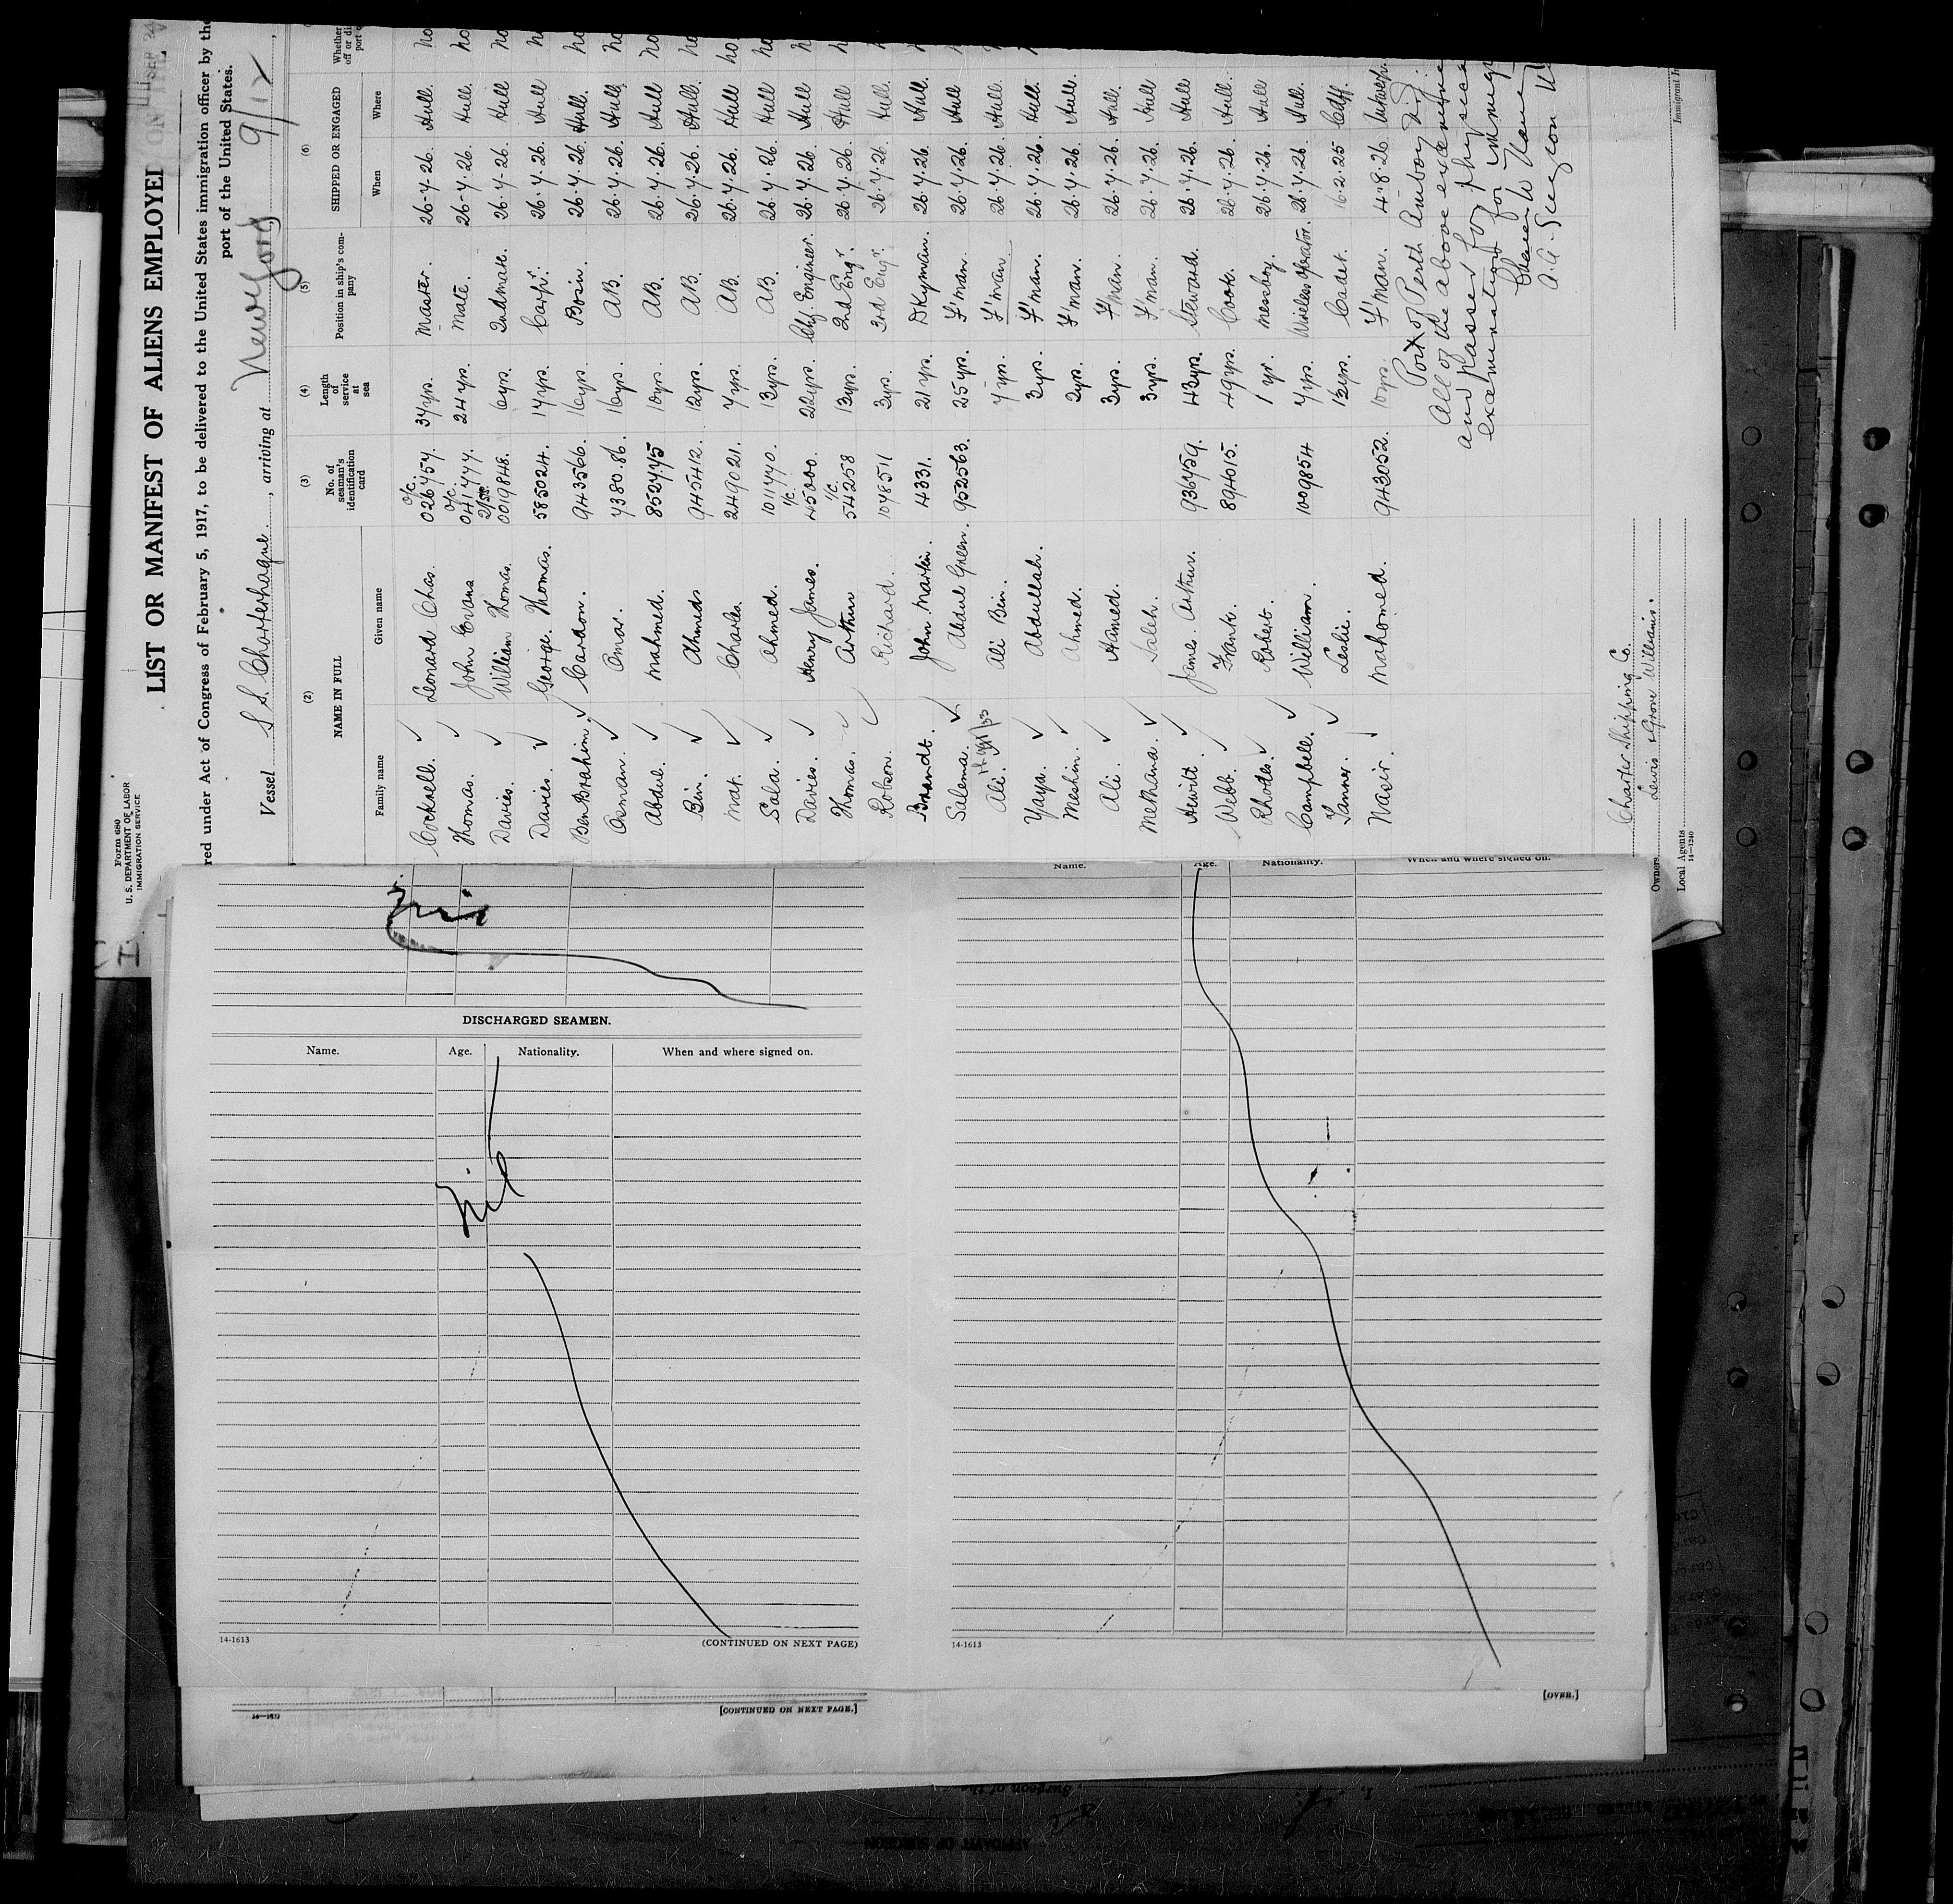 Form 680
U. S. DEPARTMENT OF LABOR
IMMIGRATION SERVICE
LIST OR MANIFEST OF ALIENS EMPLOYED ON THE
red under Act of Congress of February 5, 1917, to be delivered to the United States immigration officer by the
port of the United States.
Vessel S.S. Charterhague, arriving at New York 9/12
(2) (3) (4) (5) (6)
NAME IN FULL No. of seaman's identification card Length of service at sea Position in ship's company SHIPPED OR ENGAGED Whether
Family name Given name When Where
Cocknell. ✓ Leonard Chas. o/c. 026757. 37yrs. Master. 26-7-26. Hull. no
Thomas. ✓ John Evans o/c. 041777. 24 yrs. Mate. 26-7-26. Hull. no
Davies. ✓ William Thomas. 0019848. 6yrs. 2nd mate. 26-7-26. Hull no
Davies. ✓ George Thomas. 585024. 17yrs. Carptr. 26.7.26. Hull
Ben Brahim. ✓ Cardon. 943566. 16yrs. Bosin. 26.7.26. Hull. no
Osman. ✓ Omar. 738086. 16yrs. AB. 26.7.26. Hull no
Abdul. ✓ Mahmed. 852775 10yrs. AB. 26.7.26. Hull no
Bin. ✓ Ahmeds 945412. 12yrs. AB. 26.7.26. Hull. no
Mat. ✓ Charles. 249021. 7yrs. AB. 26.7.26. Hull no.
Sala. ✓ Ahmed. 1011770. 13yrs. AB. 26.7.26 Hull no
Davies. ✓ Henry James. 1/c. 45000. 22yrs. Chf. Engineer. 26.7.26. Hull
Thomas. ✓ Arthur 1/c. 54258 13yrs. 2nd Engr. 26.7.26. Hull
Robson. ✓ Richard. 1078511 3yrs. 3rd Engr. 26.7.26. Hull.
Brandt. John Martin. 4331. 21 yrs. DKyman. 26.7.26. Hull.
Salema. ✓ Abdul Green. 952563. 25yrs. F'man. 26.7.26. Hull
Ali. Ali Bin. 7 yrs. F'man. 26.7.26. Hull.
Yaya. ✓ Abdullah. 3yrs. F'man. 26.7.26. Hull.
Meshin. ✓ Ahmed. 2yrs. F'man. 26.7.26. Hull.
Ali. ✓ Hamed. 3yrs. F'man. 26.7.26. Hull.
Methana. ✓ Saleh. 3yrs. F'man. 26.7.26. Hull
Hewitt ✓ James Arthur. 936759. 43yrs. Steward. 26.7.26. Hull
Webb. ✓ Frank. 894015. 49yrs. Cook. 26.7.26. Hull.
Rhodes. ✓ Robert. 1 yr. Messboy. 26.7.26. Hull
Campbell. ✓ William. 1009854 7yrs. Wireless Operator. 26.7.26 Hull.
Tanner. ✓ Leslie. 1½yrs. Cadet. 16.2.25 Cdff.
Nasir. Mahomed. 943052. 10yrs. F'man. 4.8.26. Antwerp.
Port of Perth Amboy
All of the above examined
and passed for physical
examination for immigr
A.A. Surgeon
Owners Charter Shipping Co.
Local Agents Lewis & Grove Williams.
14-1240
Immigrant In
Nil
DISCHARGED SEAMEN.
Name. Age. Nationality. When and where signed on.
Nil
14-1613 (CONTINUED ON NEXT PAGE)
[CONTINUED ON NEXT PAGE.]
Name. Age. Nationality. When and where signed on.
14-1613
[OVER.]
AFFIDAVIT OF SURGEON